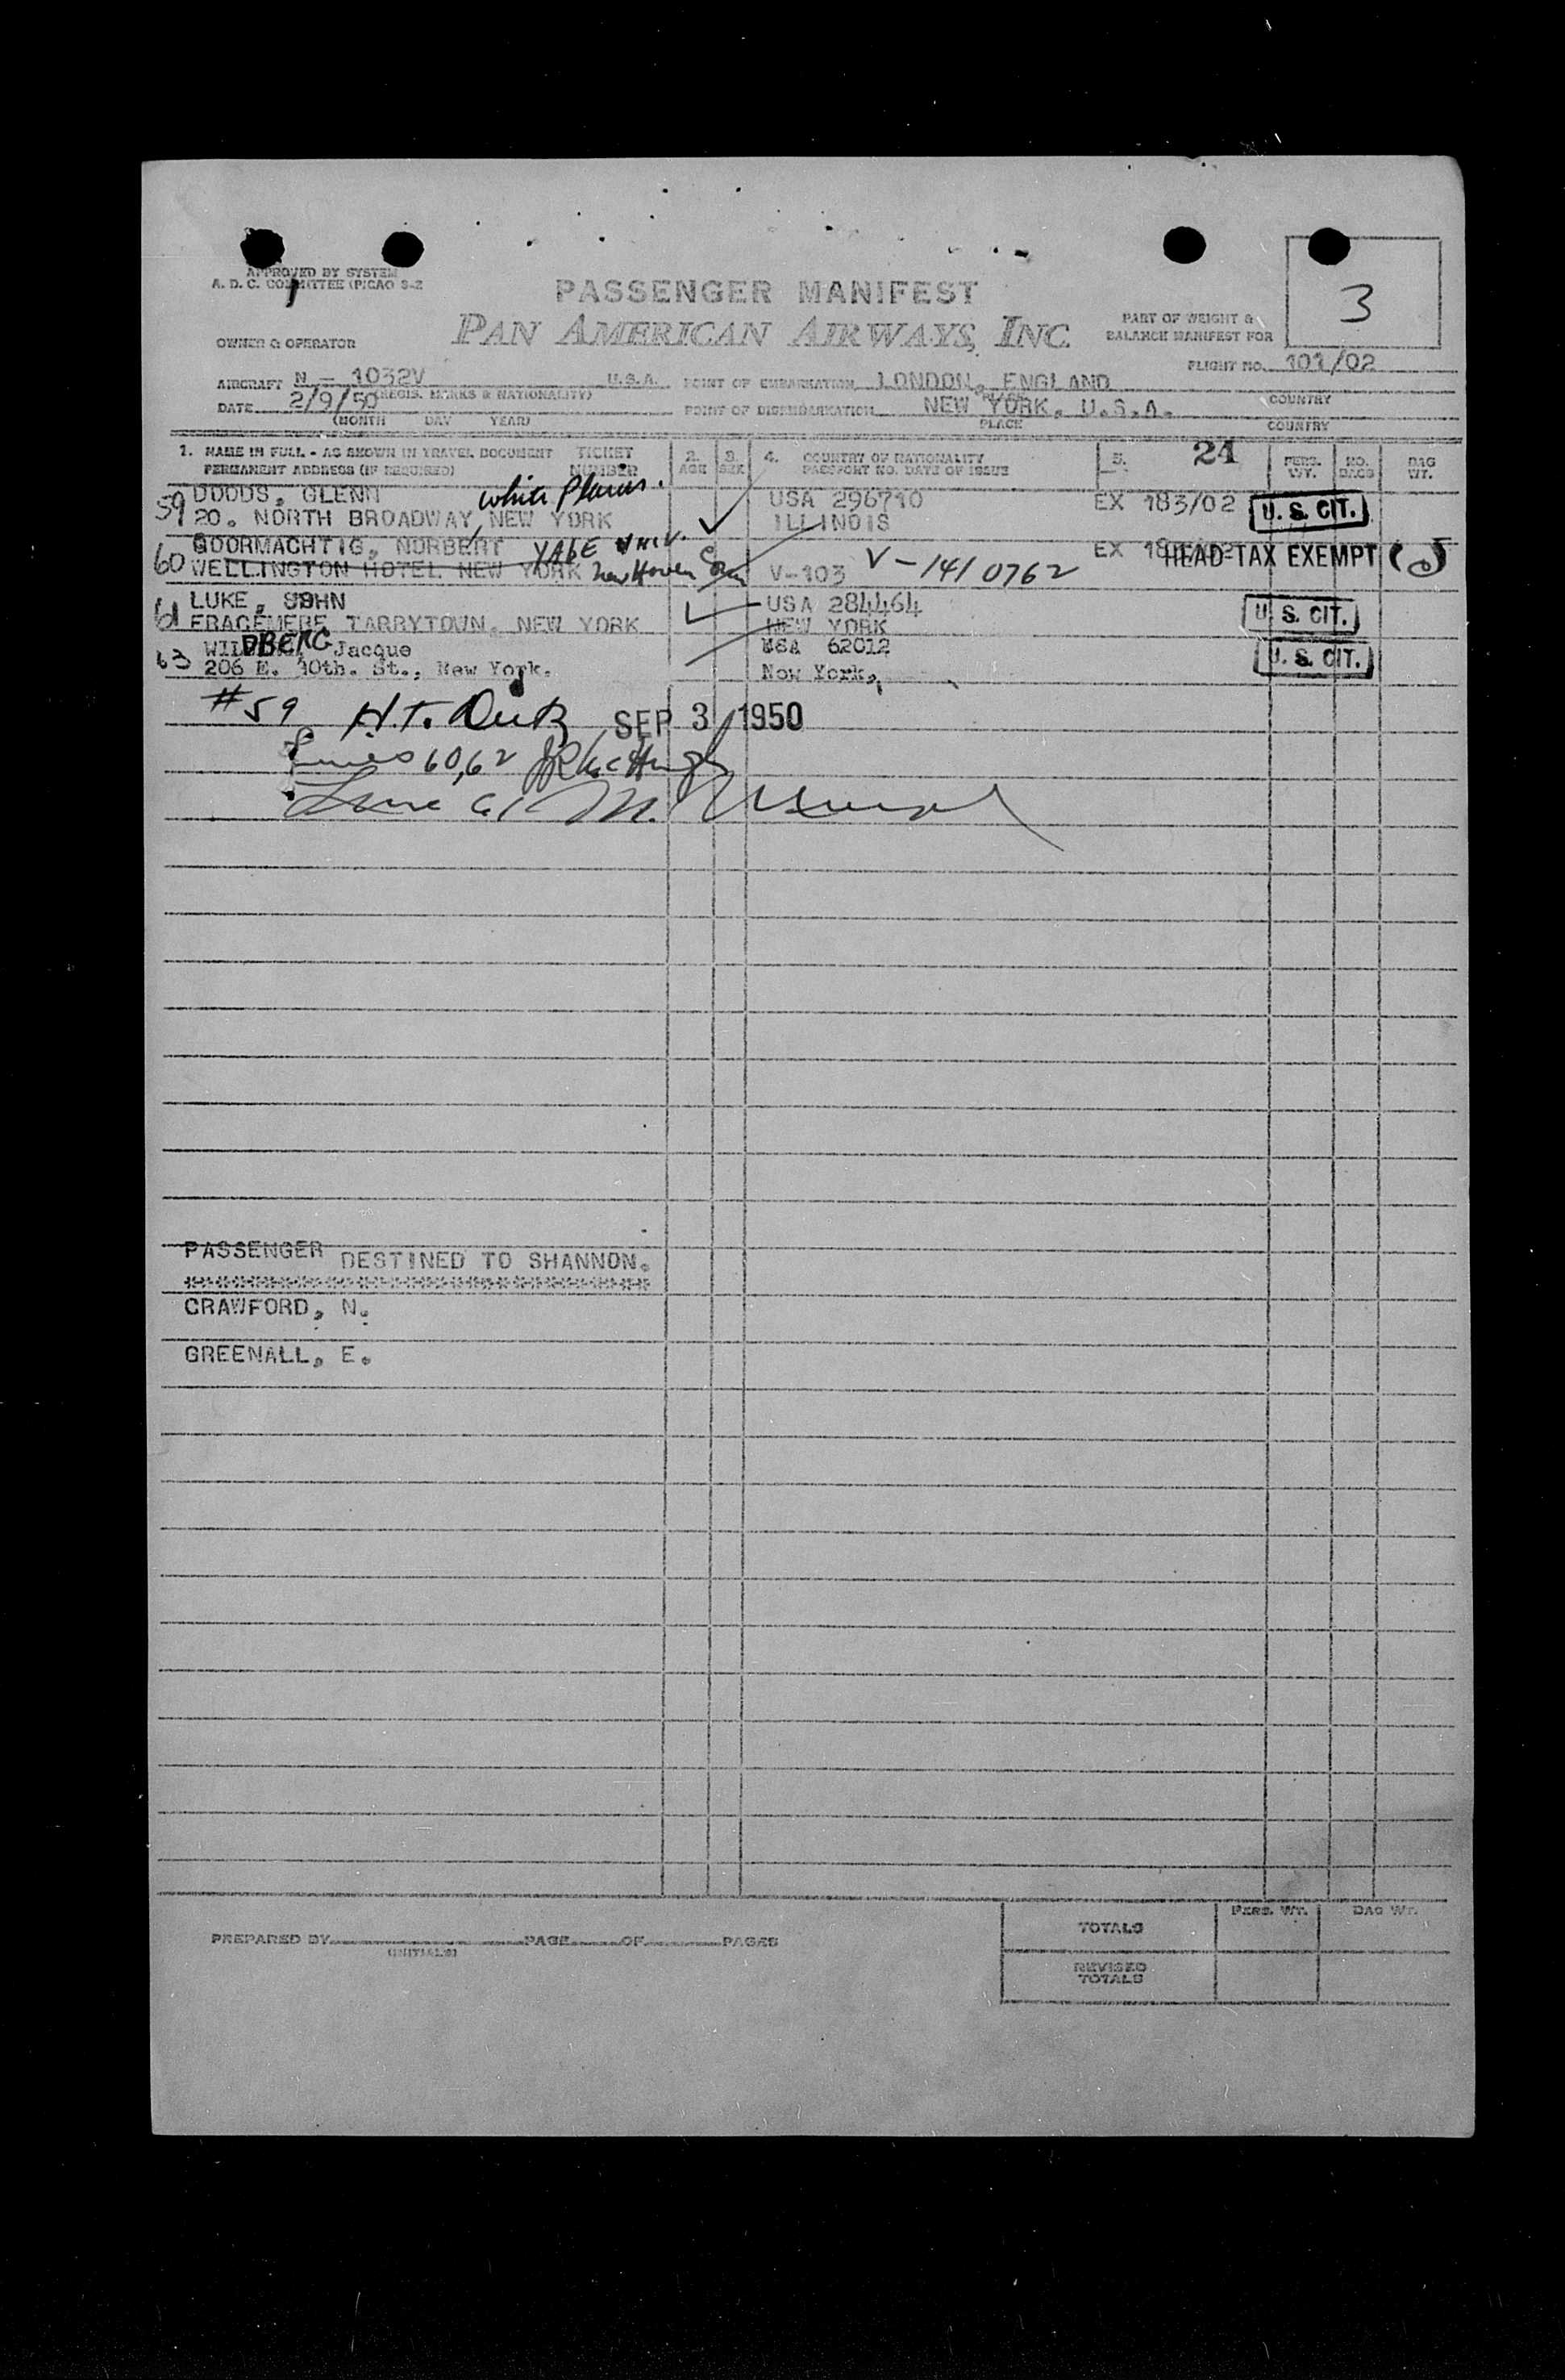 APPROVED BY SYSTEM
A. D. C. COMMITTEE (PICAO S-2
3
PASSENGER MANIFEST
PAN AMERICAN AIRWAYS, INC.
PART OF WEIGHT &
BALANCE MANIFEST FOR
OWNER & OPERATOR
FLIGHT NO. 101/02
AIRCRAFT N - 1032V U.S.A. POINT OF EMBARKATION LONDON, ENGLAND
(REGIS. MARKS & NATIONALITY) PLACE COUNTRY
DATE 2/9/50 POINT OF DISEMBARKATION NEW YORK, U.S.A.
(MONTH DAY YEAR) PLACE COUNTRY
1. NAME IN FULL - AS SHOWN IN TRAVEL DOCUMENT TICKET 2. 3. 4. COUNTRY OF NATIONALITY 5. 21 PERS. NO. BAG
PERMANENT ADDRESS (IF REQUIRED) NUMBER AGE SEX PASSPORT NO. DATE OF ISSUE WT. BAGS WT.
59 DODDS, GLENN White Plains. USA 296710 EX 183/02 U. S. CIT.
20. NORTH BROADWAY, NEW YORK ILLINOIS
60 GOORMACHTIG, NORBERT YALE UNIV. EX HEAD TAX EXEMPT
WELLINGTON HOTEL NEW YORK New Haven Conn V-103 V-1410762
61 LUKE, JOHN USA 284464 U. S. CIT.
TARRYTOWN, NEW YORK NEW YORK
63 WILDBERG Jacque USA 62012 U. S. CIT.
206 E. 40th. St., New York. New York,
#59 H.T. SEP 3 1950
Lines 60,62
Line 61 M.
PASSENGER DESTINED TO SHANNON.
CRAWFORD, N.
GREENALL, E.
PERS. WT. BAG WT.
TOTALS
PREPARED BY PAGE OF PAGES
(INITIALS)
REVISED
TOTALS